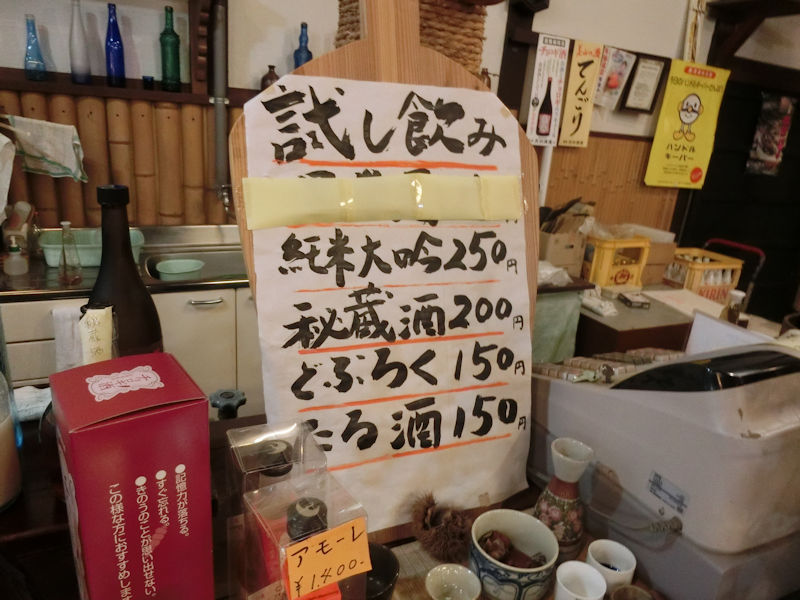 試し飲み
純米大吟250円
秘蔵酒200円
どぶろく150円
たる酒150円
チョロギ酒
●記憶力が落ちる。
●すぐ忘れる。
●きのうのことが思い出せない。
この様な方におすすめします
アモーレ
¥1,400.
秘蔵酒
てんごり
ハンドル
キーパー
KIRIN